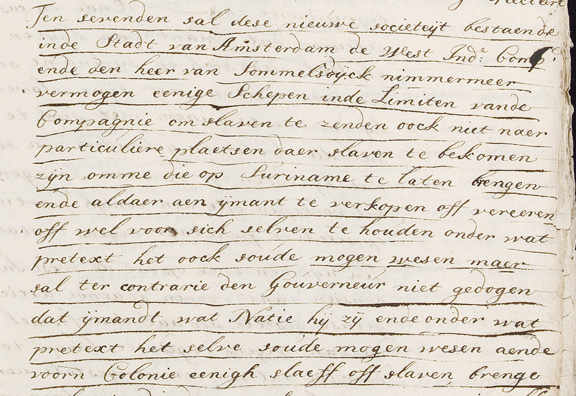 Ten sevenden sal dese nieuwe societeijt bestaende
inde Stadt van Amsterdam de West Ind: Comp
ende den heer van Sommelsdijck nimmermeer
vermogen eenige Schepen inde Limiten vande
Compagnie om slaven te zenden oock niet naer
particuliere plaetsen daer slaven te bekomen
zijn omme die op Suriname te laten brengen
ende aldaer aen ijmant te verkopen off vereeren
off wel voor sich selven te houden onder wat
pretext het oock soude mogen wesen maer
sal ter contrarie den Gouverneur niet gedogen
dat ijmandt wat Natie hij zij ende onder wat
pretext het selve soude mogen wesen aende
voorn Colonie eenigh slaeff off slaven brenge